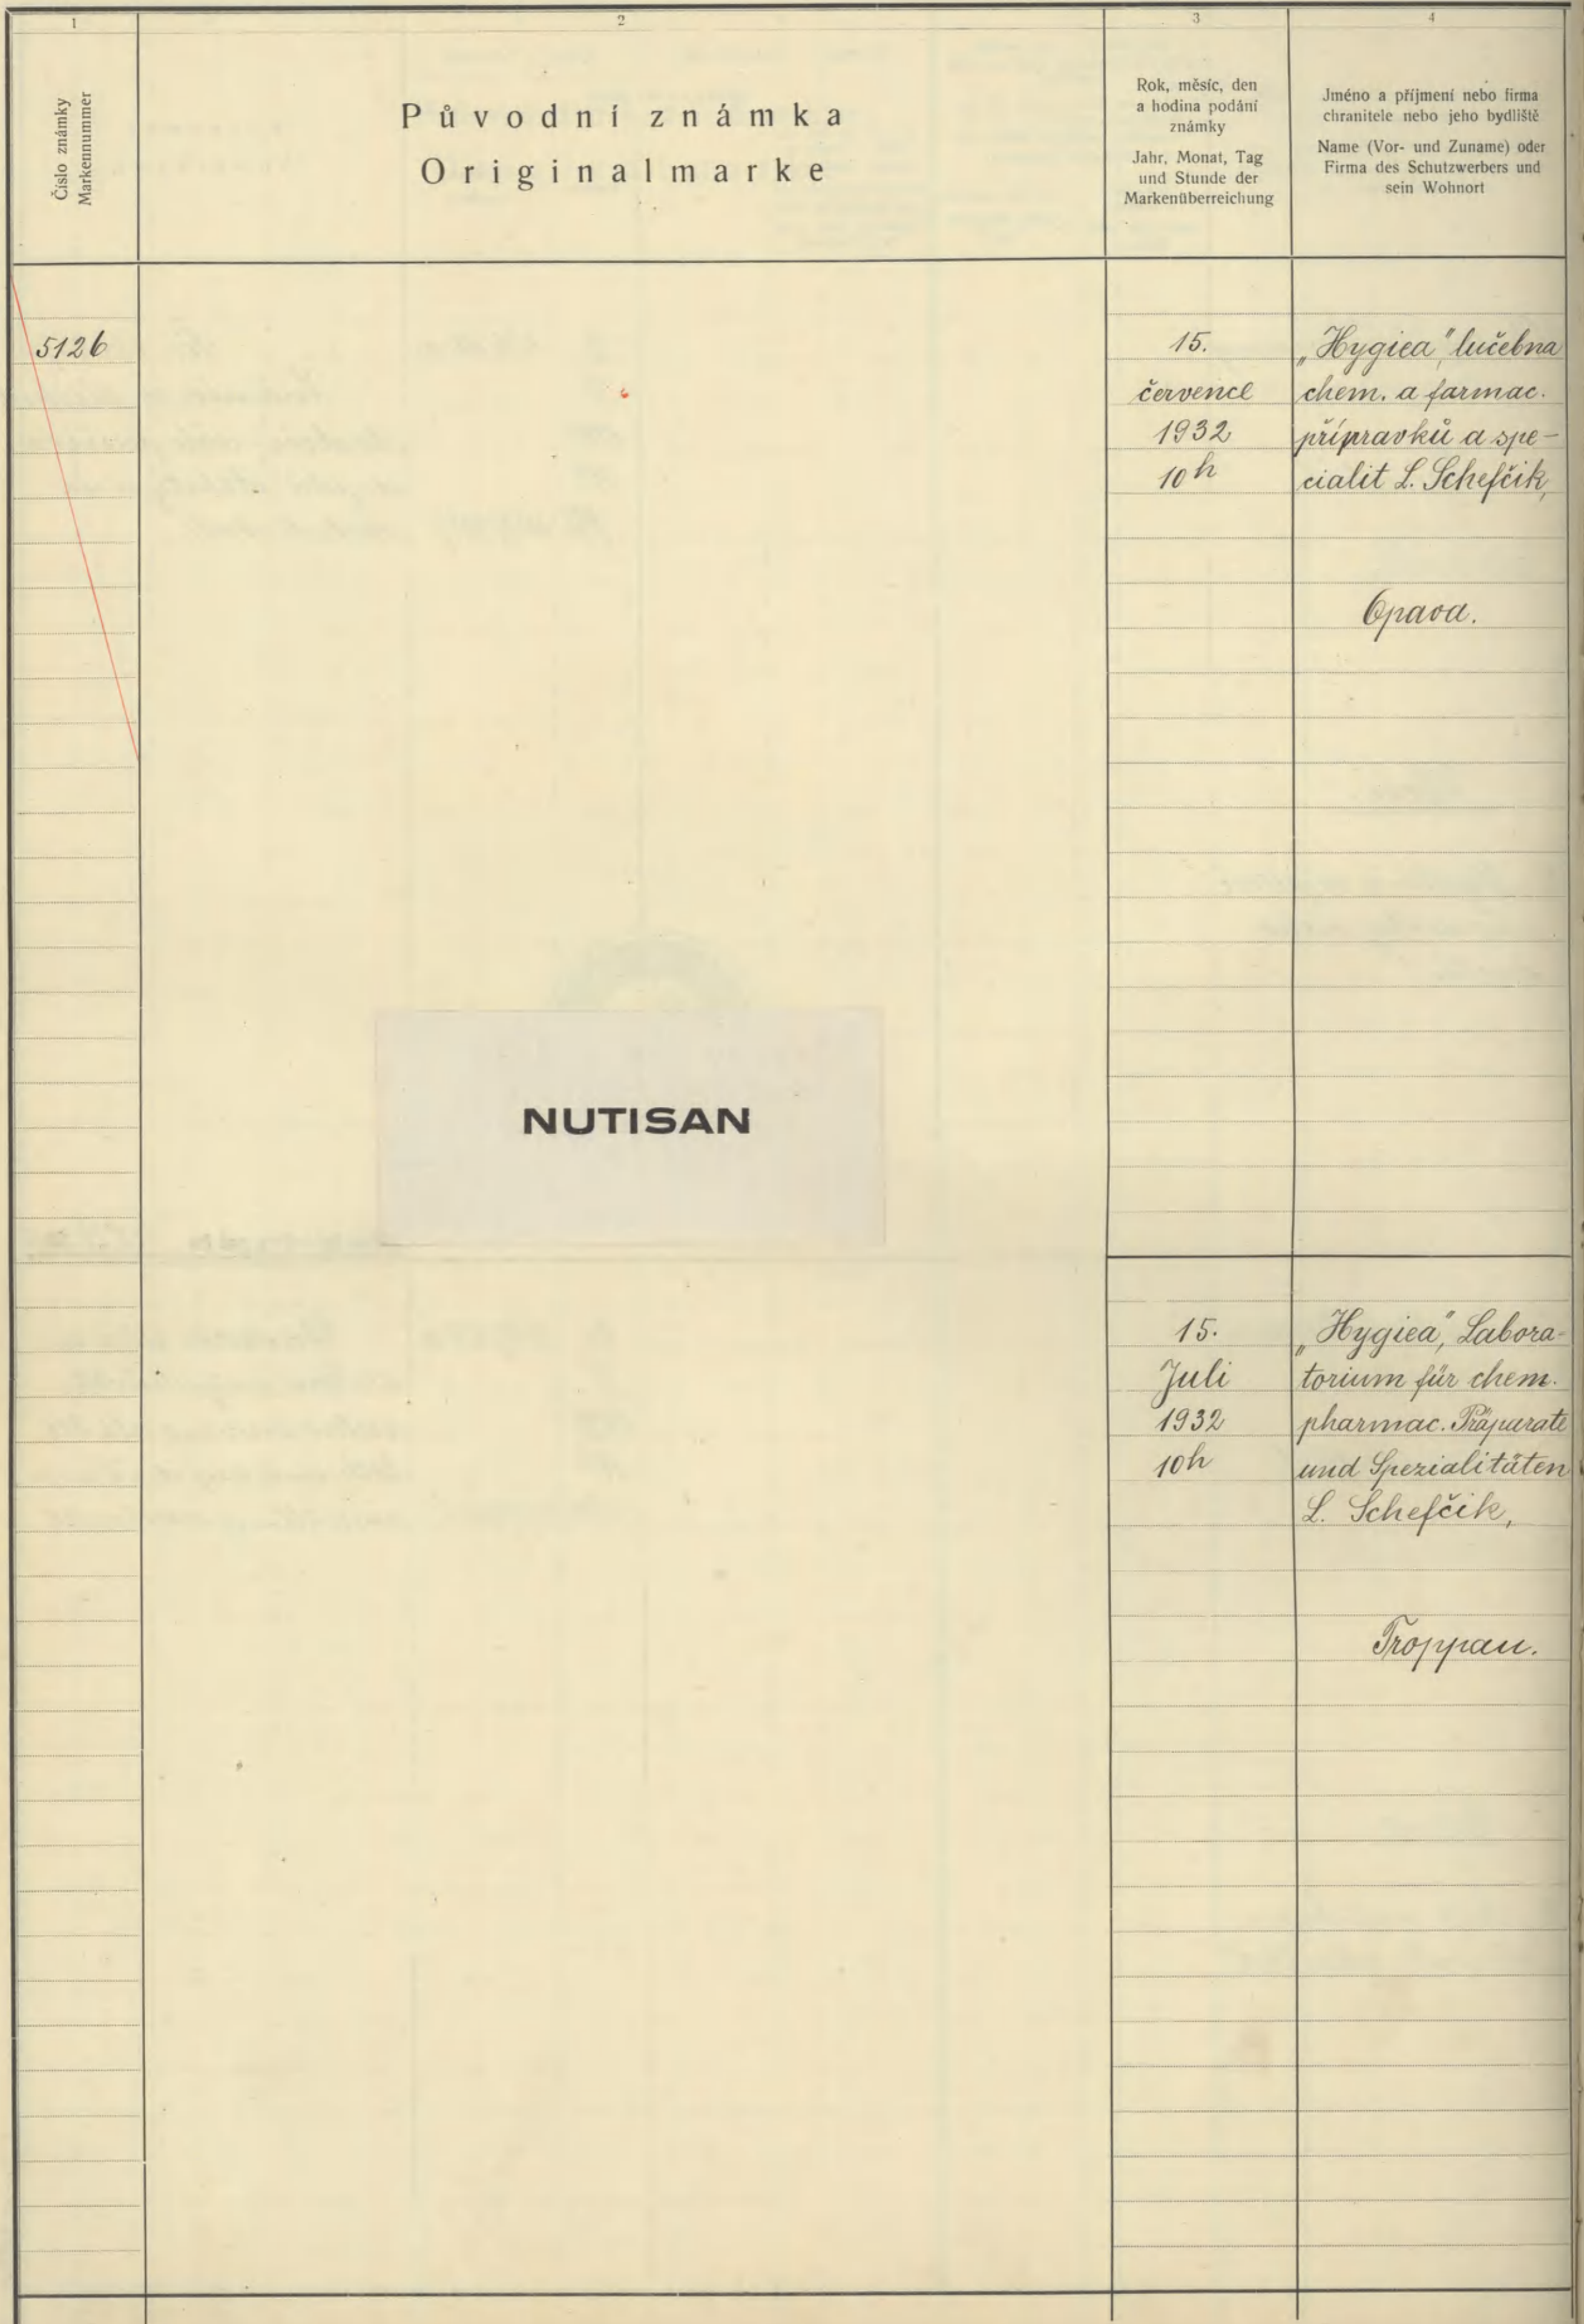 1
2
3
4
Číslo známky
Markennummer
Původní známka
Originalmarke
Rok, měsíc, den
a hodina podání
známky
Jahr, Monat, Tag
und Stunde der
Markenüberreichung
Jméno a příjmení nebo firma
chranitele nebo jeho bydliště
Name (Vor- und Zuname) oder
Firma des Schutzwerbers und
sein Wohnort
5126
15.
července
1932
10h
„Hygiea" lučebna
chem. a farmac.
přípravků a spe-
cialit L. Schefčik,
Opava.
NUTISAN
15.
Juli
1932
10h
„Hygiea", Labora-
torium für chem.
pharmac. Präparate
und Spezialitäten
L. Schefčik,
Troppau.